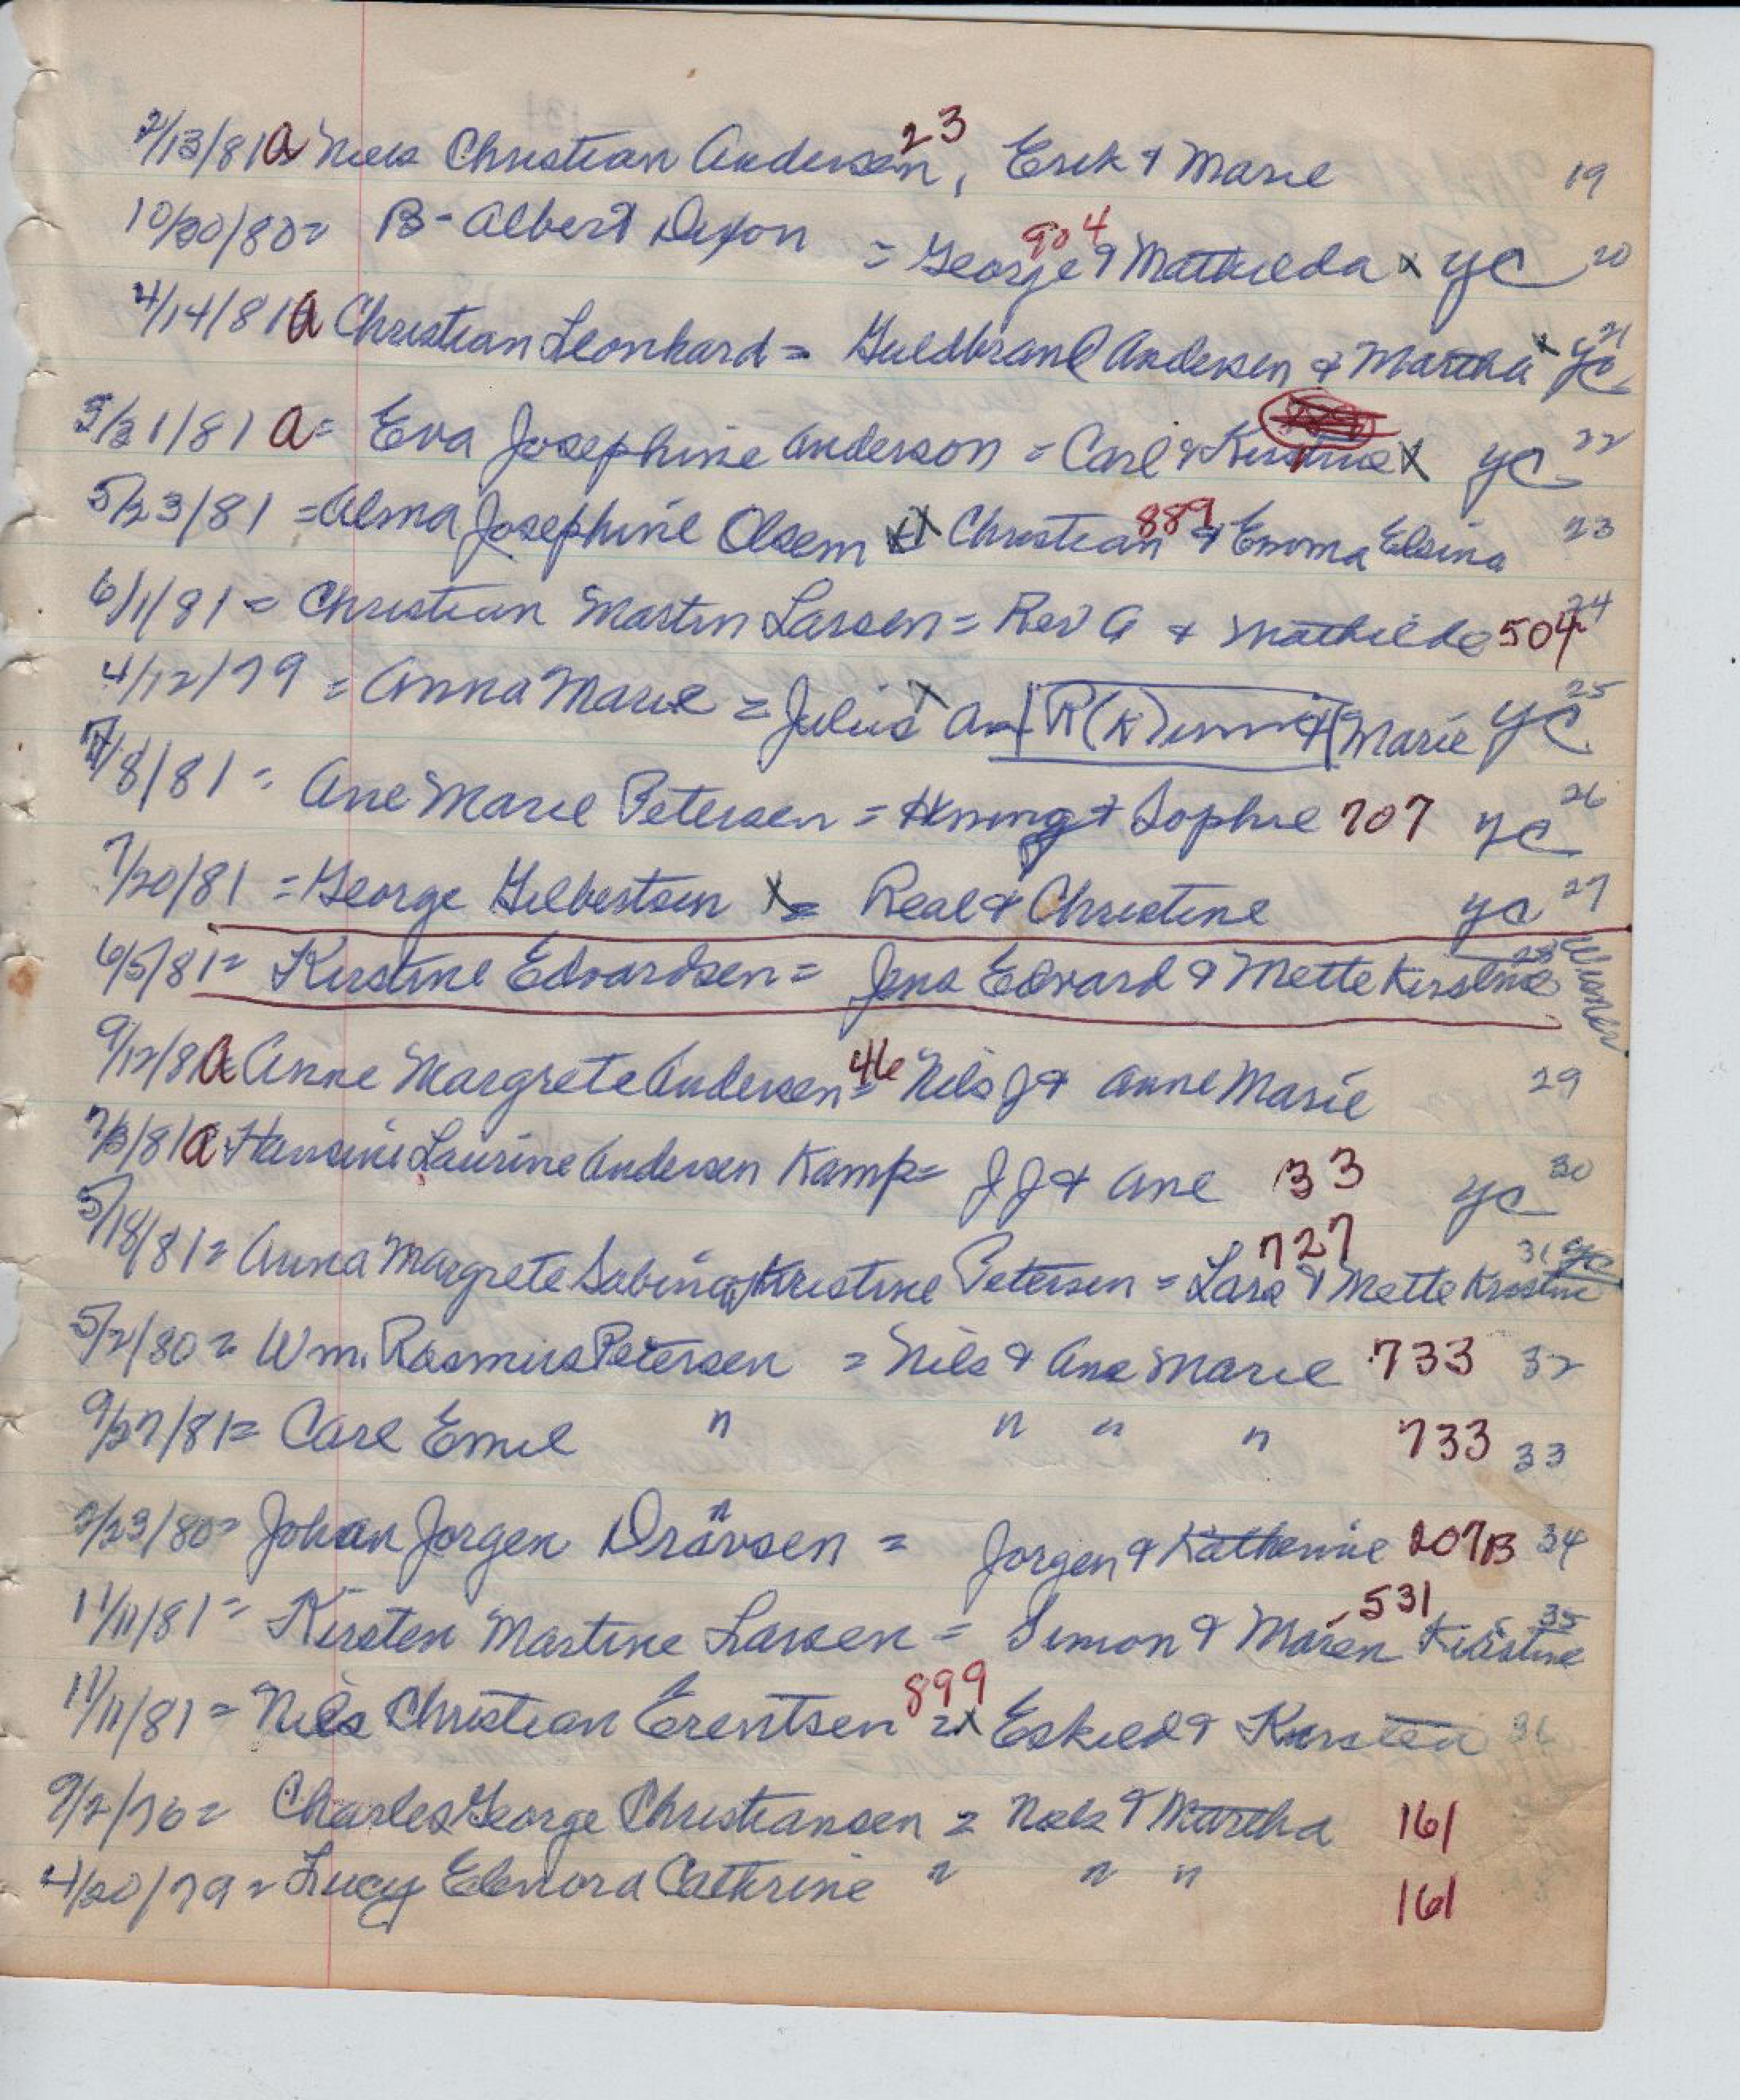 2/13/81 a Niels Christian Andersen, 23 Erik & Marie 19
10/20/80 = B- Albert Dixon = George & Mathilda 904 x yc 20
4/14/81 a Christian Leonhard = Guldbrand Andersen & Martha x yc 21
5/21/81 a = Eva Josephine Anderson = Carl & Kirstine x yc 22
5/23/81 = Alma Josephine Olsem x Christian & Emma Elsina 889 23
6/1/81 = Christian Martin Larsen = Rev A & Mathilde 504 24
4/12/79 = Anna Marie = Julius x & Marie yc 25
7/8/81 = Ane Marie Petersen = Hming & Sophie 707 yc 26
7/20/81 = George Gilbertsen x = Real & Christine yc 27
6/5/81 = Kirstine Edvardsen = Jens Edvard & Mette Kirstine 28
9/12/8 a Anne Margrete Andersen = 46 Nils J & Anne Marie 29
7/3/81 a Hansine Laurine Andersen Kamp = J J & Ane 33 yc 30
5/18/81 = Anna Margrete Sabina Kristine Petersen = Lars & Mette Kirstine 727 31 yc
5/2/80 = Wm. Rasmus Petersen = Nils & Ane Marie 733 32
9/27/81 = Carl Emil " " " " 733 33
2/23/80 = Johan Jorgen Drävsen = Jorgen & Katherine 207B 34
11/11/81 = Kirsten Martine Larsen = Simon & Maren Kirstine 531 35
11/11/81 = Nils Christian Erentsen 899 = x Eskild & Kirsten 36
9/2/76 = Charles George Christiansen = Nels & Martha 161
4/20/79 = Lucy Elenora Cathrine " " " 161